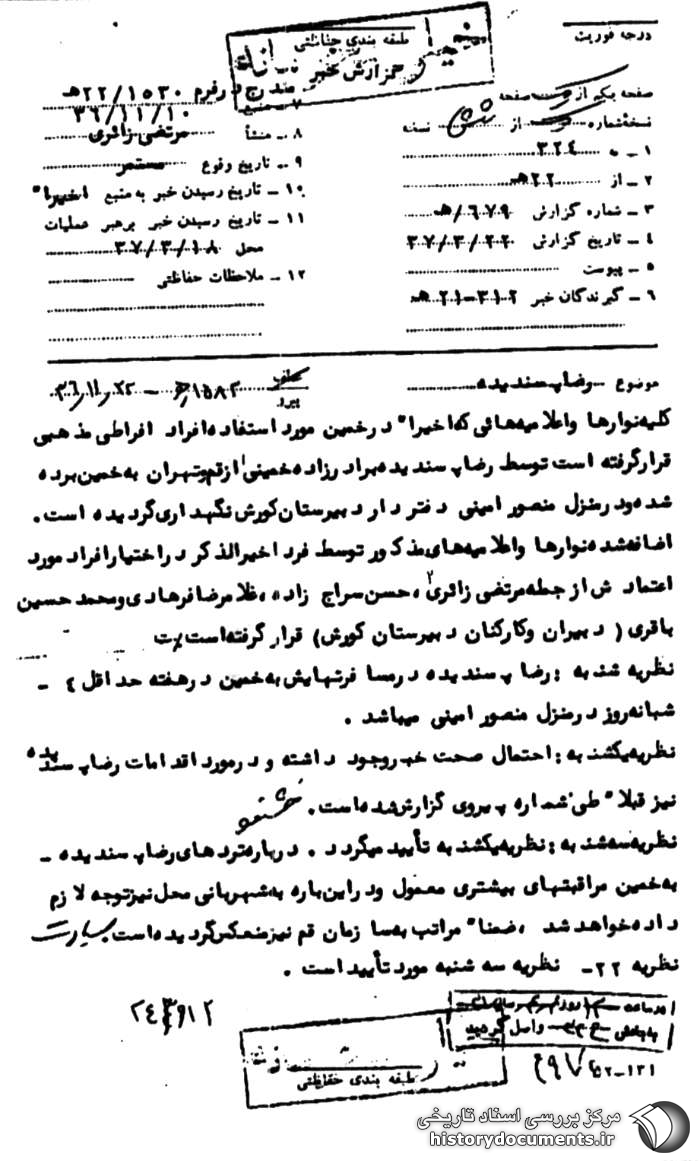 درجه فوریت
طبقه بندی حفاظتی
گزارش خبر
صفحه یکم از صفحه
نسخه شماره از نسخه
۱ ـ به ۳۲۴
۲ ـ از ۲۲ هـ
۳ ـ شماره گزارش ۶۷۹/هـ
۴ ـ تاریخ گزارش ۳۷/۳/۲۲
۵ ـ پیوست
۶ ـ گیرندگان خبر ۳۱۲-۲۱ هـ
مندرج در فرم ۲۲/۱۵۳۰ هـ
۷ ـ منبع ۳۶/۱۱/۱۰
۸ ـ منشأ مرتضی زائری
۹ ـ تاریخ وقوع مستمر
۱۰ ـ تاریخ رسیدن خبر به منبع اخیرا"
۱۱ ـ تاریخ رسیدن خبر برهبر عملیات
محل ۳۷/۳/۱۸
۱۲ ـ ملاحظات حفاظتی
موضوع ـ رضا پسندیده
عطف
پیرو
کلیه نوارها و اعلامیه‌هائی که اخیرا" در خمین مورد استفاده افراد افراطی مذهبی
قرار گرفته است توسط رضا پسندیده برادرزاده خمینی از قم و تهران به خمین برده
شده و در منزل منصور امینی دفتر دار دبیرستان کورش نگهداری گردیده است.
اضافه شده نوارها و اعلامیه‌های مذکور توسط فرد اخیرالذکر در اختیار افراد مورد
اعتماد ش از جمله مرتضی زائری، حسن سراج زاده، غلامرضا فرهادی و محمد حسین
باقری (دبیران و کارکنان دبیرستان کورش) قرار گرفته است
نظریه شنبه : رضا پسندیده در مسافرتهایش به خمین در هفته حداقل ۴ ـ
شبانه روز در منزل منصور امینی میباشد .
نظریه یکشنبه : احتمال صحت خبر وجود داشته و در مورد اقدامات رضا پسندیده
نیز قبلا" طی شماره پیروی گزارش شده است.
نظریه سه شنبه : نظریه یکشنبه تأیید میگردد . درباره ترددهای رضا پسندیده ـ
به خمین مراقبتهای بیشتری معمول و در این باره به شهربانی محل نیز توجه لازم
داده خواهد شد ، ضمنا" مراتب به سازمان قم نیز منعکس گردیده است
نظریه ۲۲ ـ نظریه سه شنبه مورد تأیید است .
واصل گردید
طبقه بندی حفاظتی
۵۲-۱۳۱
مرکز بررسی اسناد تاریخی
historydocuments.ir